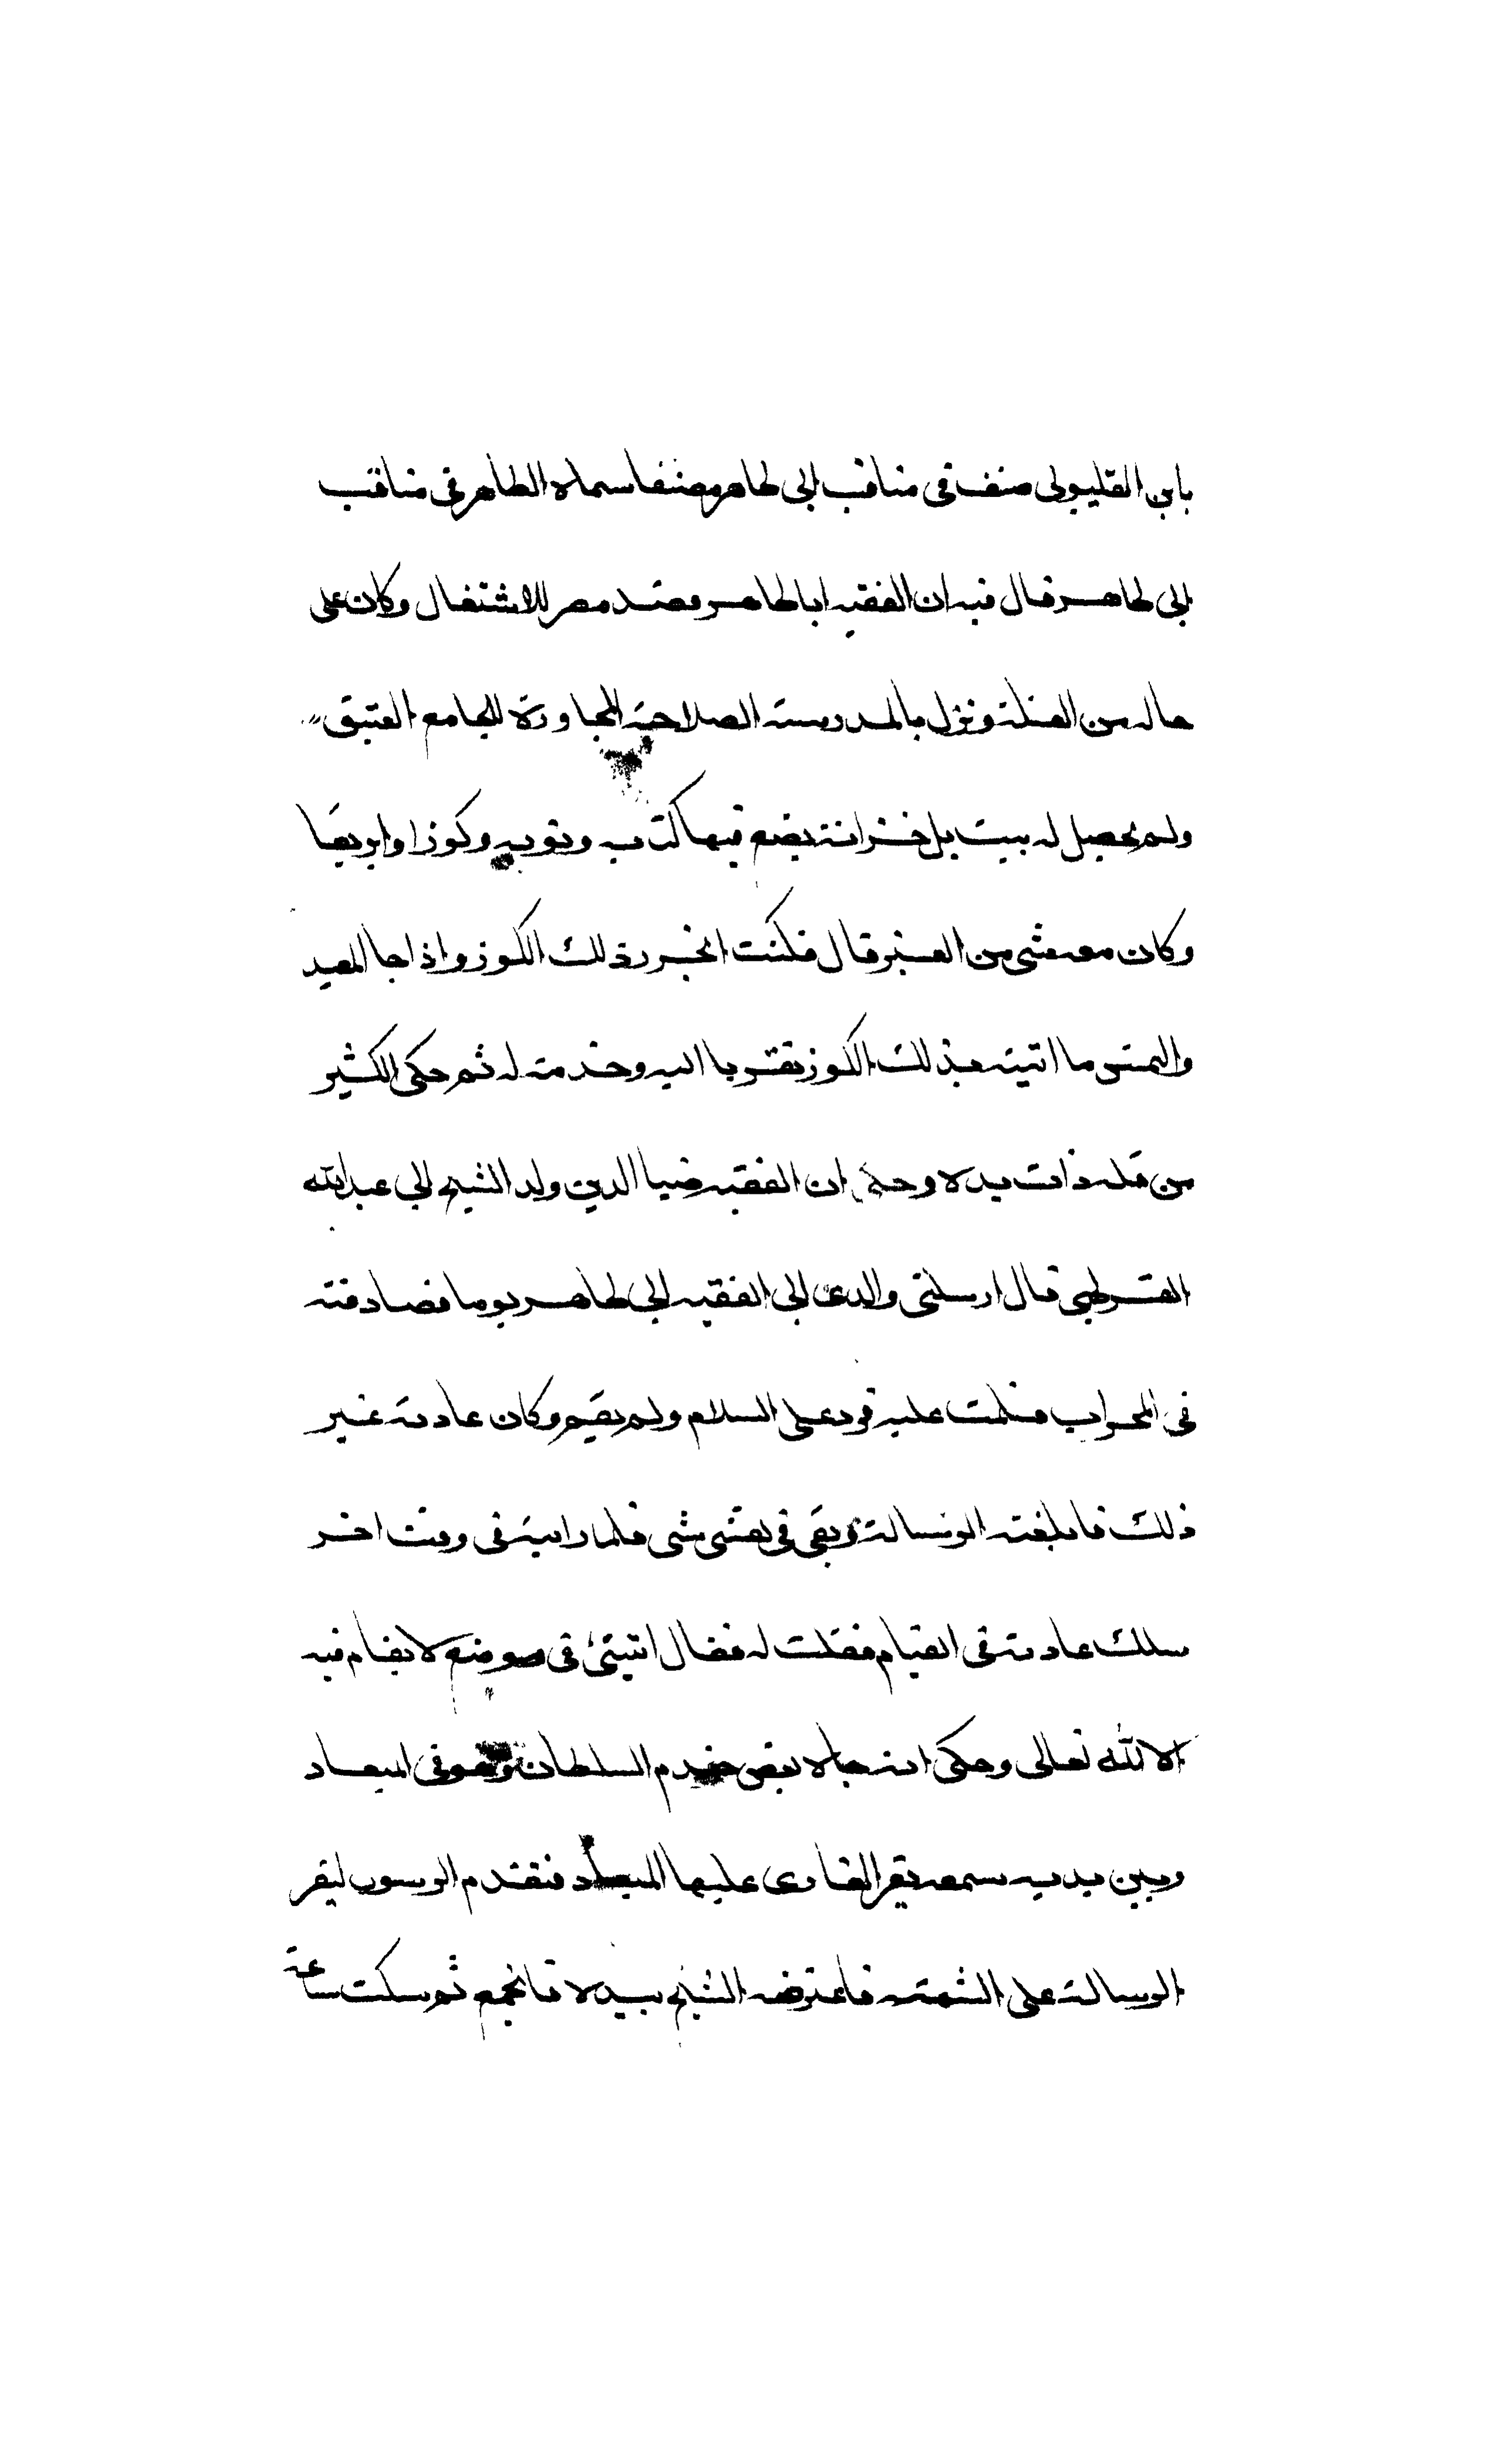 بابن القليوبى صنف فى مناقب ابى طاهر مصنفا سماه الظاهر فى مناقب
ابى طاهر قال فيه ان الفقيه ابا طاهر قصد مصر للاشتغال وكان على
حاله من القلة ونزل بالمدرسة الصلاحية المجاورة للجامع العتيق
ولم يحصل له بيت بل خزانة يضع فيها كتبه وثوبه وكوزا وابريقا
وكان معه شى من العنبر قال فكنت ابخر ذلك الكوز واذا جا المعيد
والتمس ما اتيته بذلك الكوز تقربا اليه وخدمة له ثم حكى الكثير
من قلة ذات يده وحكى ان الفقيه ضيا الدين ولد الشيخ ابى عبد الله
القرطبى قال ارسلنى والدى الى الفقيه ابى طاهر يوما فصادفته
فى المحراب فسلمت عليه فرد على السلام ولم يقم وكان عادته غير
ذلك فابلغته الرسالة وبقى فى نفسى شى فلما رايته فى وقت اخر
سلك عادته فى القيام فقلت له فقال اتيتنى فى موضع لا يقام فيه
الا لله تعالى وحكى انه جاه بعض خدم السلطان وهو فى الميعاد
وبين يديه سمعه يقرا القارى عليها الميعاد فتقدم الرسول ليقر
الرسالة على الشمعة فاعترضه الشيخ بيده فانجمع ثم سكت ساعة